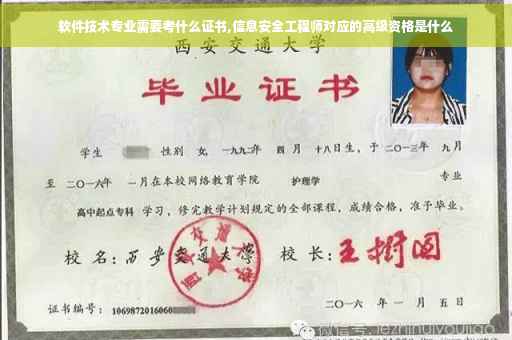 软件技术专业需要考什么证书,信息安全工程师对应的高级资格是什么
西安交通大学
毕业证书
学生 性别 女,一九九二年 四月 十八日生,于二〇一三年 九月
至 二〇一六年 一月在本校网络教育学院 护理学 专业
高中起点专科 学习,修完教学计划规定的全部课程,成绩合格,准予毕业。
校名:西安交通大学 校长:王树国
西安交通大学
证书编号: 1069872016060
二〇一六年 一月五日
微信号: jezhihuiyoujiao